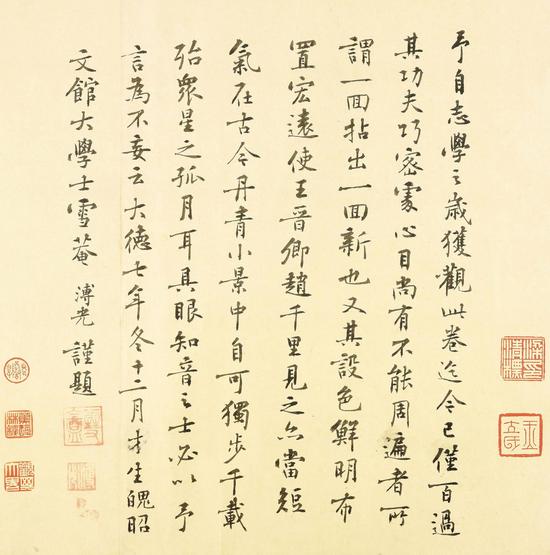 予自志學之歲獲觀此卷迄今已僅百過
其功夫巧密處心目尚有不能周遍者所
謂一回拈出一回新也又其設色鮮明布
置宏遠使王晉卿趙千里見之亦當短
氣在古今丹青小景中自可獨步千載
殆衆星之孤月耳具眼知音之士必以予
言為不妄云大德七年冬十二月才生魄昭
文館大學士雪菴溥光謹題